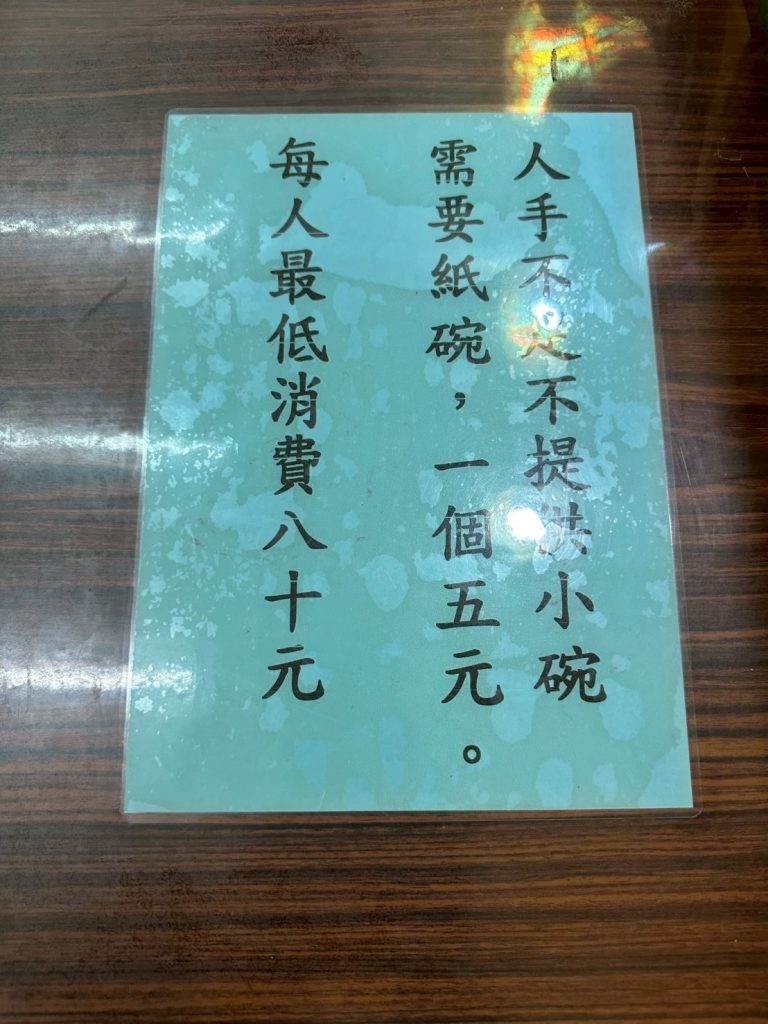 人手不足不提供小碗
需要紙碗，一個五元。
每人最低消費八十元